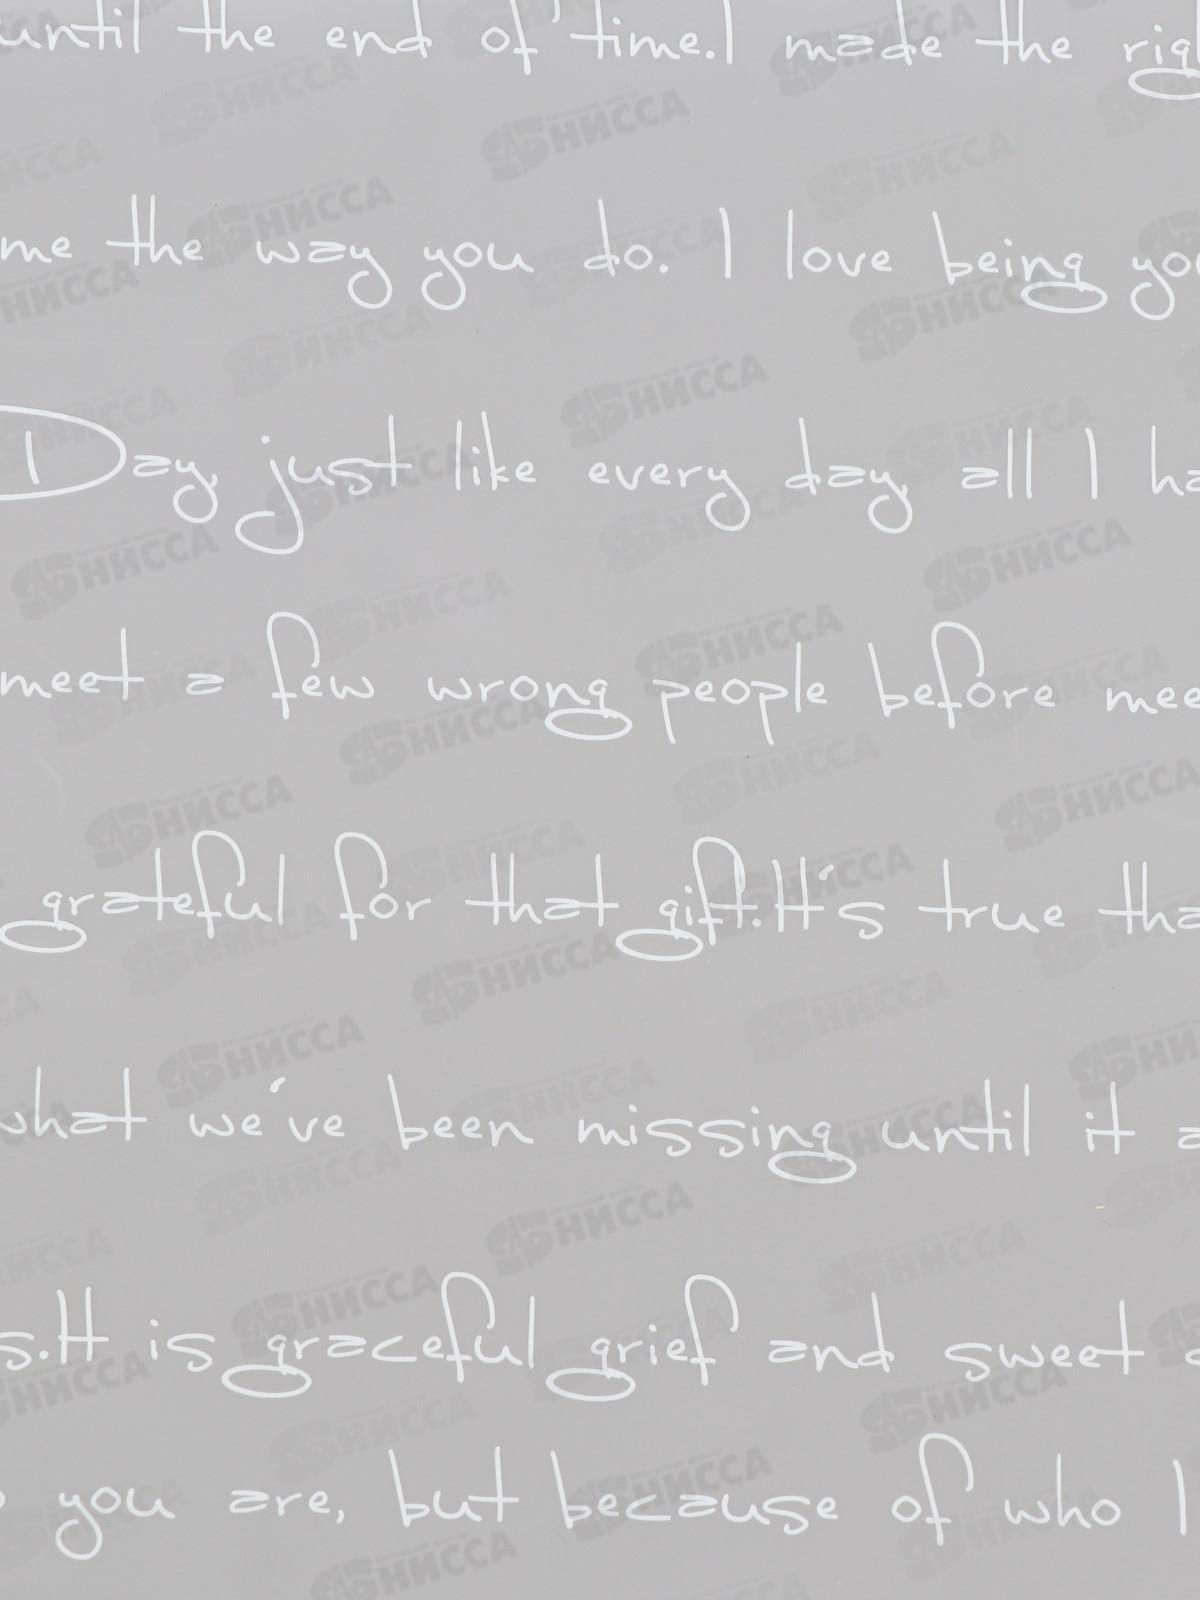 until the end of time. I made the
me the way you do. I love being
Day, just like every day, all I
meet a few wrong people before
grateful for that gift. It's true
what we've been missing until it
s. It is graceful grief and sweet
you are, but because of who I
АБ НИССА